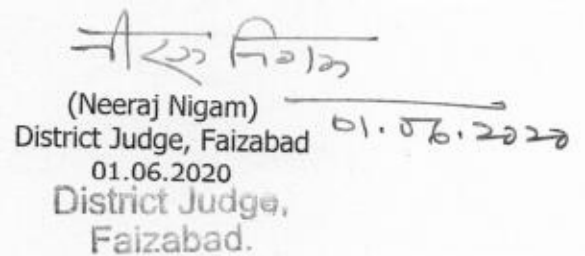 नीरज निगम
(Neeraj Nigam)
District Judge, Faizabad
01.06.2020
01.06.2020
District Judge,
Faizabad.